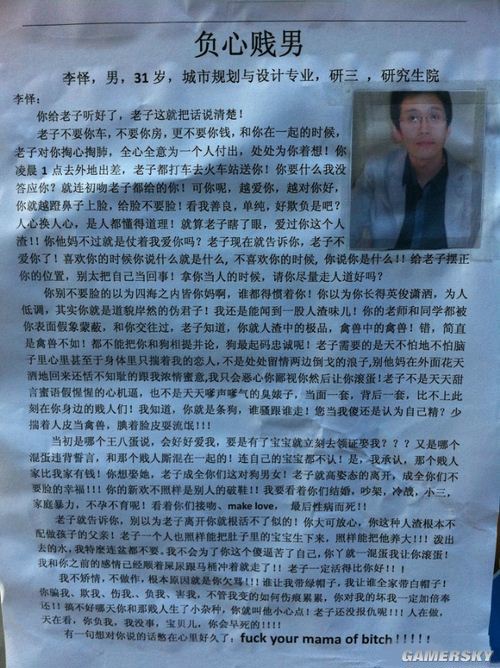 负心贱男
李怿，男，31 岁，城市规划与设计专业，研三 ，研究生院
李怿：
你给老子听好了，老子这就把话说清楚！
老子不要你车，不要你房，更不要你钱，和你在一起的时候，
老子对你掏心掏肺，全心全意为一个人付出，处处为你着想！你
凌晨 1 点去外地出差，老子都打车去火车站送你！你要什么我没
答应你？就连初吻老子都给的你！可你呢，越爱你，越对你好，
你就越蹬鼻子上脸，给脸不要脸！看我善良，单纯，好欺负是吧？
人心换人心，是人都懂得道理！就算老子瞎了眼，爱过你这个人
渣!！你他妈不过就是仗着我爱你吗？老子现在就告诉你，老子不
爱你了！喜欢你的时候你说什么就是什么，不喜欢你的时候，你说你是什么!！给老子摆正
你的位置，别太把自己当回事！拿你当人的时候，请你尽量走人道好吗？
你别不要脸的以为四海之内皆你妈啊，谁都得惯着你！你以为你长得英俊潇洒，为人
低调，其实你就是道貌岸然的伪君子！我还是能闻到一股人渣味儿！你的老师和同学都被
你表面假象蒙蔽，和你交往过，老子知道，你就人渣中的极品，禽兽中的禽兽！错，简直
是禽兽不如！都不能把你和狗相提并论，狗最起码忠诚呢！老子需要的是天不怕地不怕脑
子里心里甚至于身体里只揣着我的恋人,不是处处留情两边倒戈的浪子,别他妈在外面花天
酒地回来还恬不知耻的跟我浓情蜜意,我只会恶心你鄙视你然后让你滚蛋!老子不是天天甜
言蜜语假惺惺的心机逼，也不是天天嗲声嗲气的臭婊子，当面一套，背后一套，比不上此
刻在你身边的贱人们！我知道，你就是条狗，谁骚跟谁走！您当我傻还是认为自己精？少
揣着人皮当禽兽，腆着脸皮耍流氓!!！
当初是哪个王八蛋说，会好好爱我，要是有了宝宝就立刻去领证娶我？？？又是哪个
混蛋违背誓言，和那个贱人厮混在一起的！连自己的宝宝都不认！是，我承认，那个贱人
家比我家有钱！你想娶她，老子成全你们这对狗男女！老子就高姿态的离开，成全你们不
要脸的幸福!!！你的新欢不照样是别人的破鞋!！我要看着你们结婚，吵架，冷战，小三，
家庭暴力，不孕不育呢！看着你们接吻、make love， 最后性病而死!！
老子就告诉你，别以为老子离开你就根活不了似的！你大可放心，你这种人渣根本不
配做孩子的父亲！老子一个人也照样能把肚子里的宝宝生下来，照样能把他养大!!！泼出
去的水，我特麽连盆都不要。我不会为了你这个傻逼苦了自己，你丫就一混蛋我让你滚蛋！
我和你之前的感情已经顺着屎尿跟马桶冲着就走了!！老子一定活得比你好!！！
我不矫情，不做作，根本原因就是你欠骂!!！谁让我带绿帽子，我让谁全家带白帽子！
你骗我、欺我、伤我、、负我、害我，不管我变的如何伤痕累累，你对我的坏我一定加倍奉
还!！搞不好哪天你和那贱人生了小杂种，你就叫他小心点！老子还没报仇呢!！！人在做，
天在看，你负我，我没事，宝贝儿，你会早死的!!!！
有一句想对你说的话憋在心里好久了：fuck your mama of bitch！！！！！
GAMERSKY